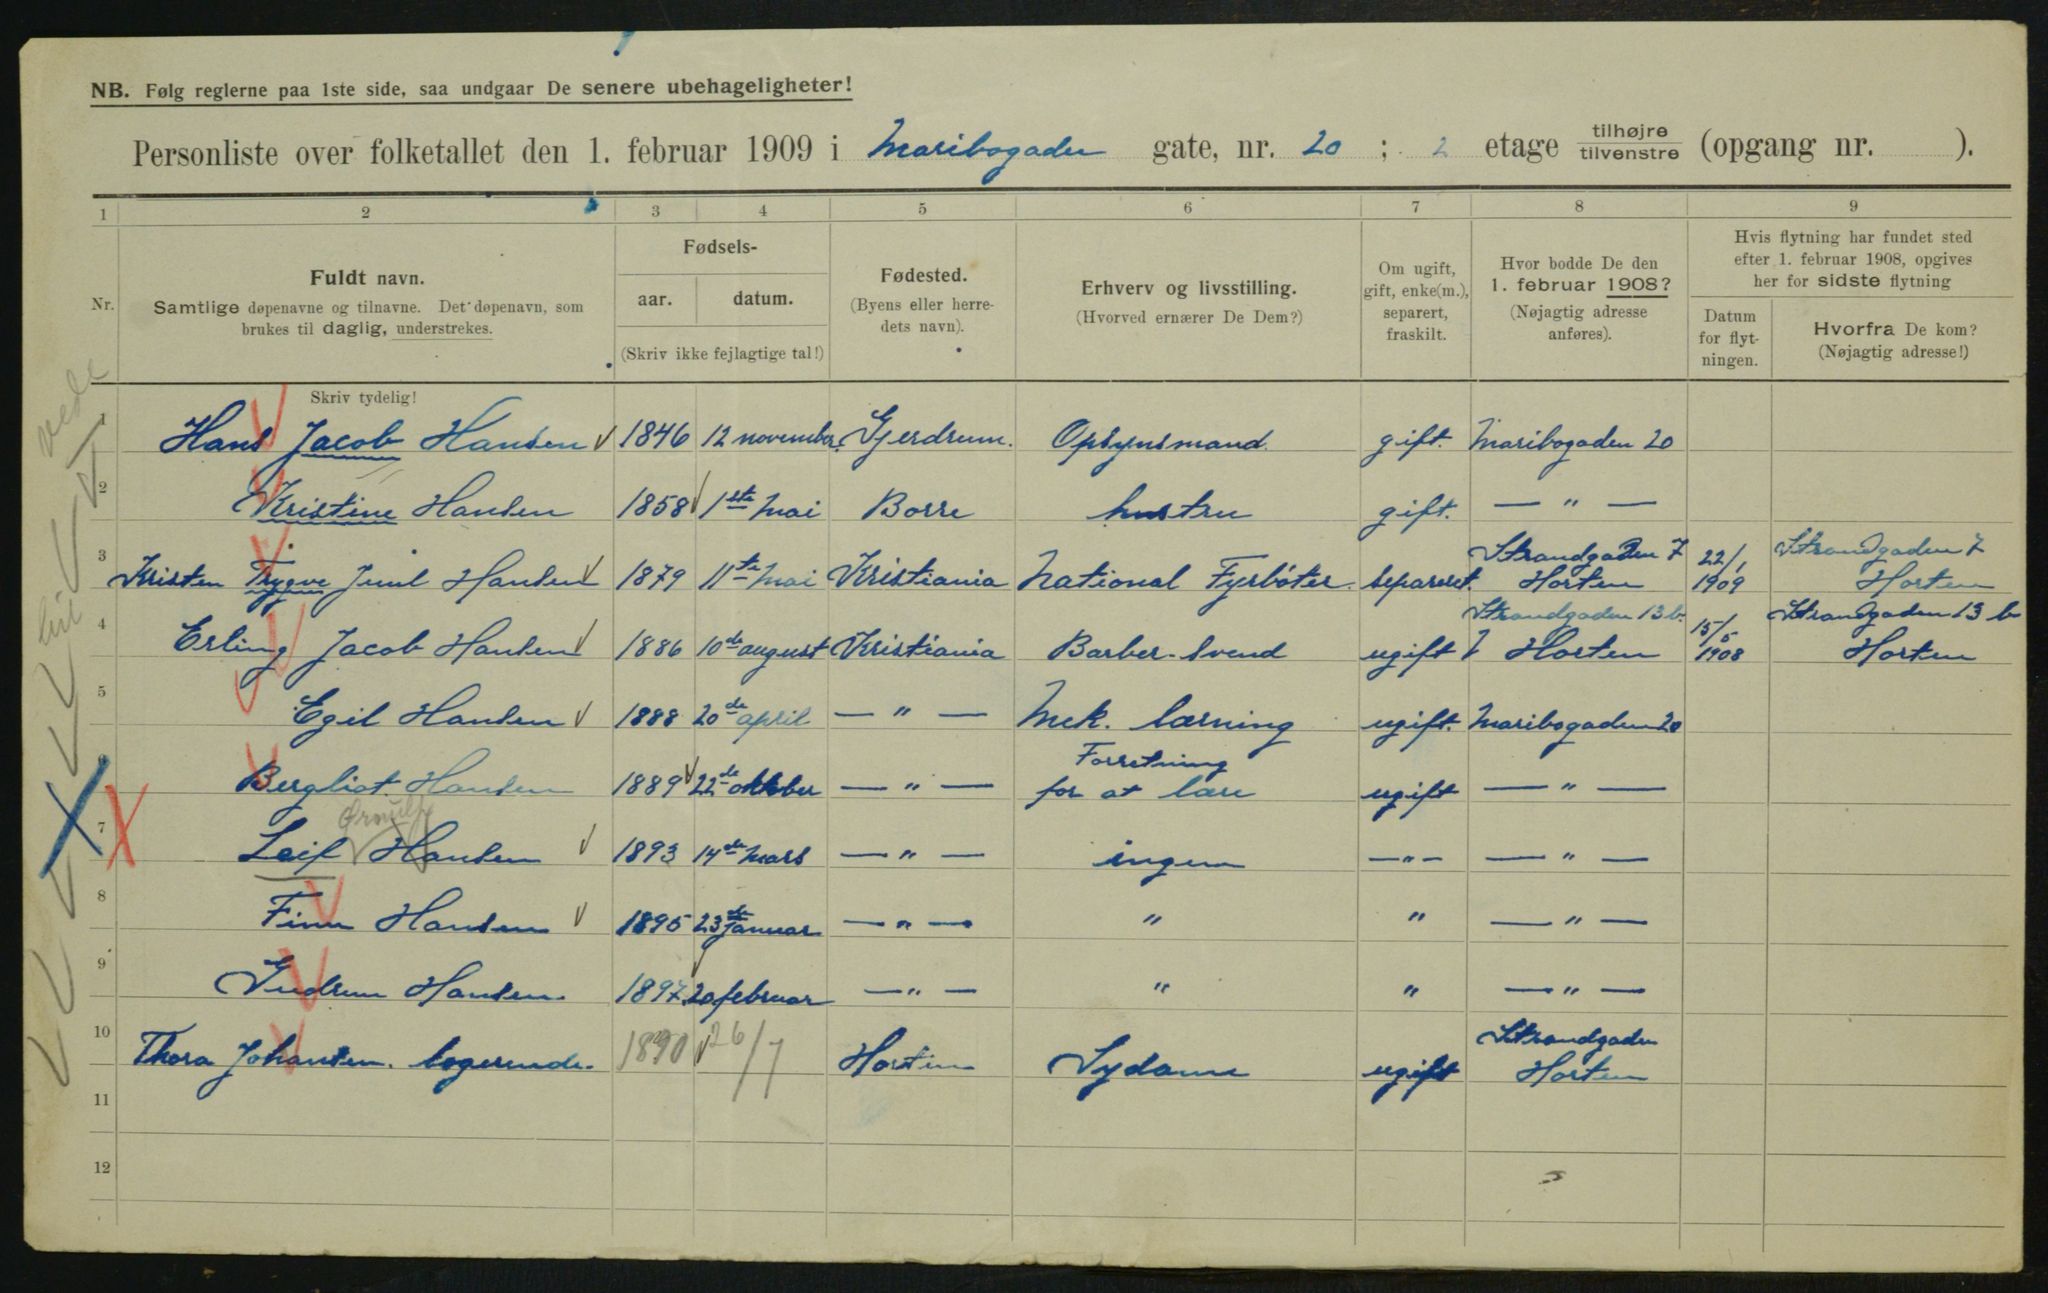 NB. Følg reglerne paa 1ste side, saa undgaar De senere ubehageligheter!
Personliste over folketallet den 1. februar 1909 i Maribogaden gate, nr. 20 ; 2 etage tilhøjre tilvenstre (opgang nr. ).
1 2 3 4 5 6 7 8 9
Nr. Fuldt navn. Samtlige døpenavne og tilnavne. Det døpenavn, som brukes til daglig, understrekes.
Fødsels- aar. datum. (Skriv ikke fejlagtige tal!)
Fødested. (Byens eller herredets navn).
Erhverv og livsstilling. (Hvorved ernærer De Dem?)
Om ugift, gift, enke(m.), separert, fraskilt.
Hvor bodde De den 1. februar 1908? (Nøjagtig adresse anføres).
Hvis flytning har fundet sted efter 1. februar 1908, opgives her for sidste flytning
Datum for flytningen.
Hvorfra De kom? (Nøjagtig adresse!)
Skriv tydelig!
1 Hans Jacob Hansen 1846 12 november. Gjerdrum. Opsynsmand. gift. Maribogaden 20
2 Kristine Hansen 1858 1ste Mai Borre hustru gift. — " —
3 Kristen Trygve Juul Hansen 1879 11te Mai Kristiania National Fyrbøter. separeret. Strandgaden 7 Horten 22/1 1909 Strandgaden 7 Horten
4 Erling Jacob Hansen 1886 10de august Kristiania Barber-Svend ugift Strandgaden 13 b. Horten 15/5 1908 Strandgaden 13 b Horten
5 Egil Hansen 1888 20de april — " — Mek. lærning ugift. Maribogaden 20
6 Bergliot Hansen 1889 22de oktober — " — Forretning for at lære ugift — " —
7 Leif Ørnulf Hansen 1893 14de Mars — " — ingen — " — — " —
8 Finn Hansen 1895 23de Januar — " — " " — " —
9 Gudrun Hansen. 1897 20 februar — " — " " — " —
10 Thora Johansen. logerende. 1890 26/7 Horten Sydame ugift Strandgaden Horten
11
12